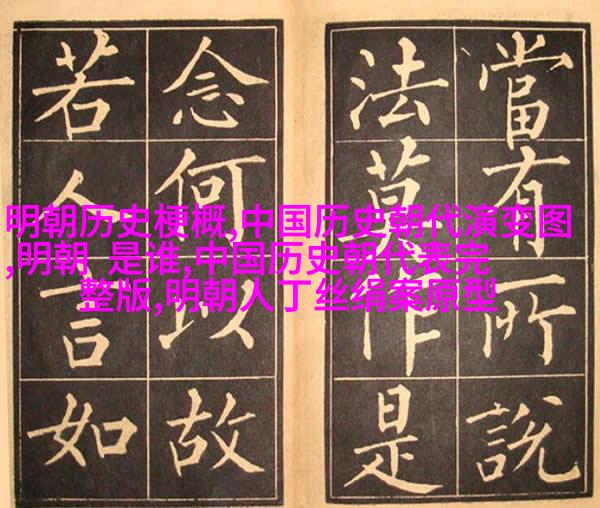 當有所說
法莫作是
念何以故
若人言如
明朝历史梗概,中国历史朝代演变图
,明朝 是谁,中国历史朝代表完
整版,明朝人丁丝绢案原型